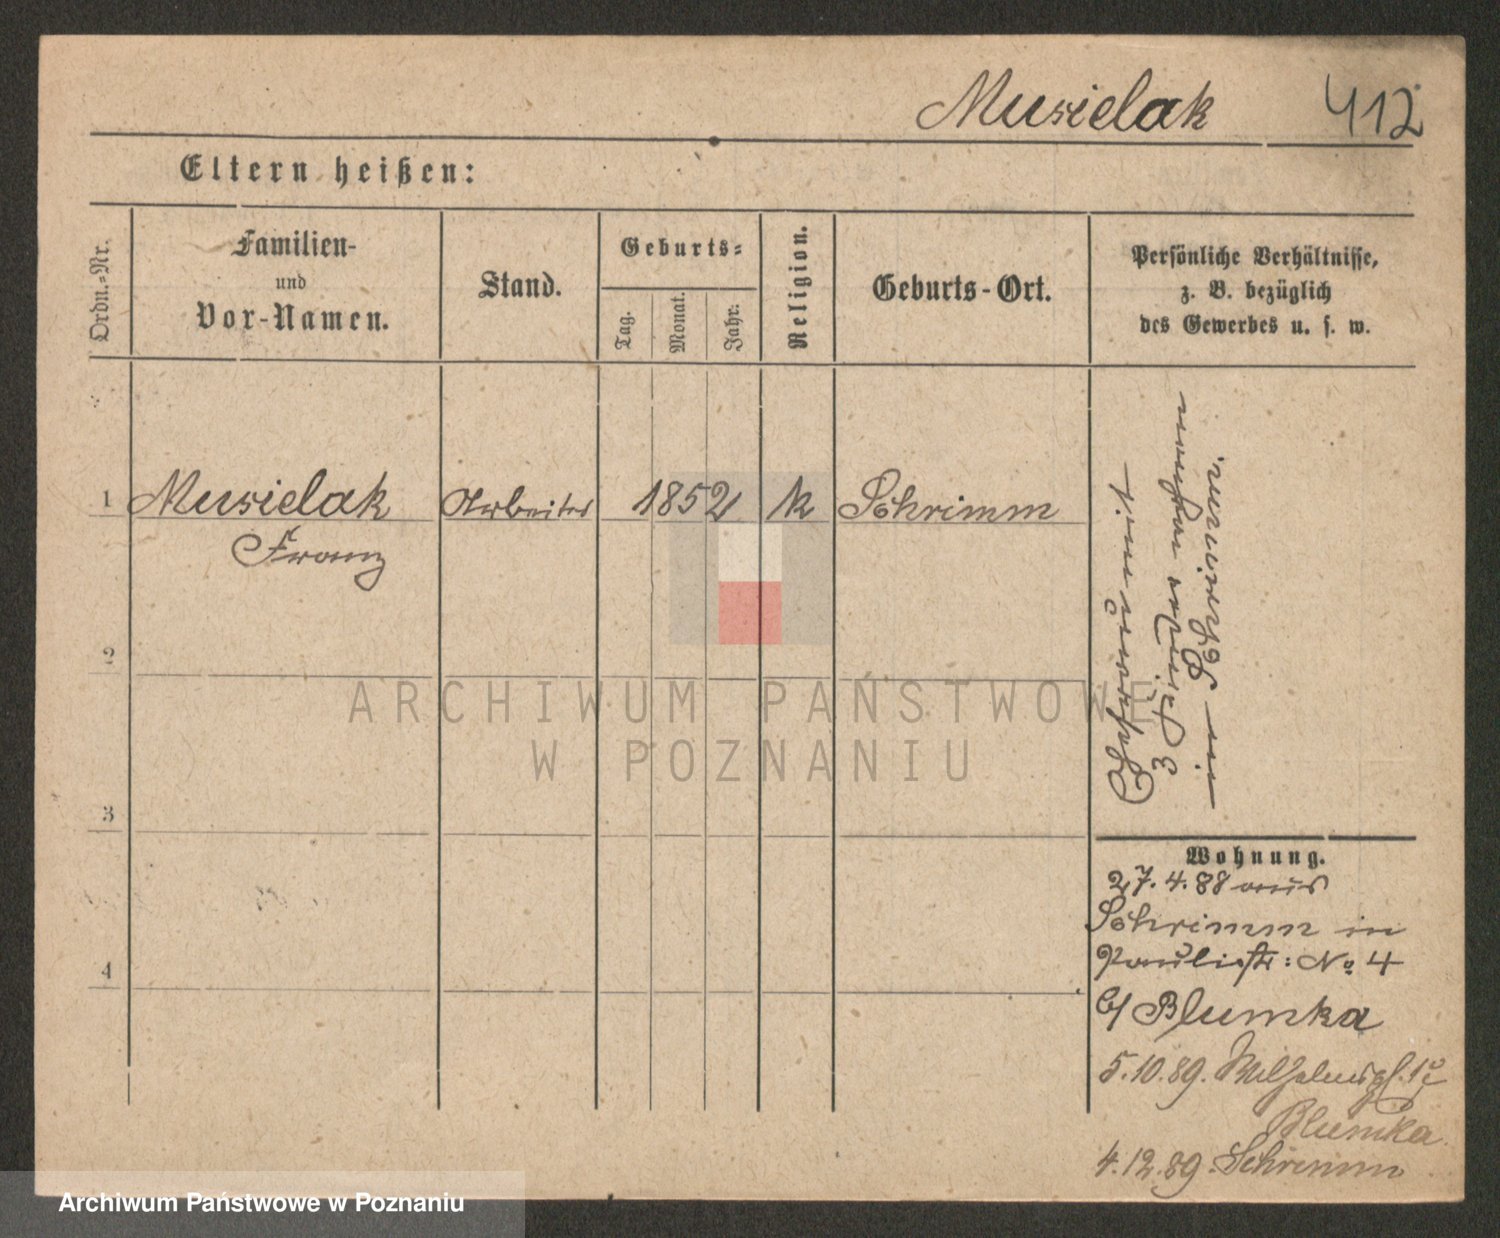 Musielak 412
Eltern heißen:
Ordn.-Nr.
Familien-
und
Vor-Namen.
Stand.
Geburts-
Tag.
Monat.
Jahr.
Religion.
Geburts-Ort.
Persönliche Verhältnisse,
z. B. bezüglich
des Gewerbes u. s. w.
1 Musielak Arbeiter 1852 k Schrimm
Franz
2
3
4
3 Kinder
in Schrimm.
Wohnung.
27.4.88 aus
Schrimm in
Paulistr: No 4
b/ Blumka
5.10.89. Wilhelmspl. 1
Blumka
4.12.89. Schrimm
ARCHIWUM PAŃSTWOWE
W POZNANIU
Archiwum Państwowe w Poznaniu